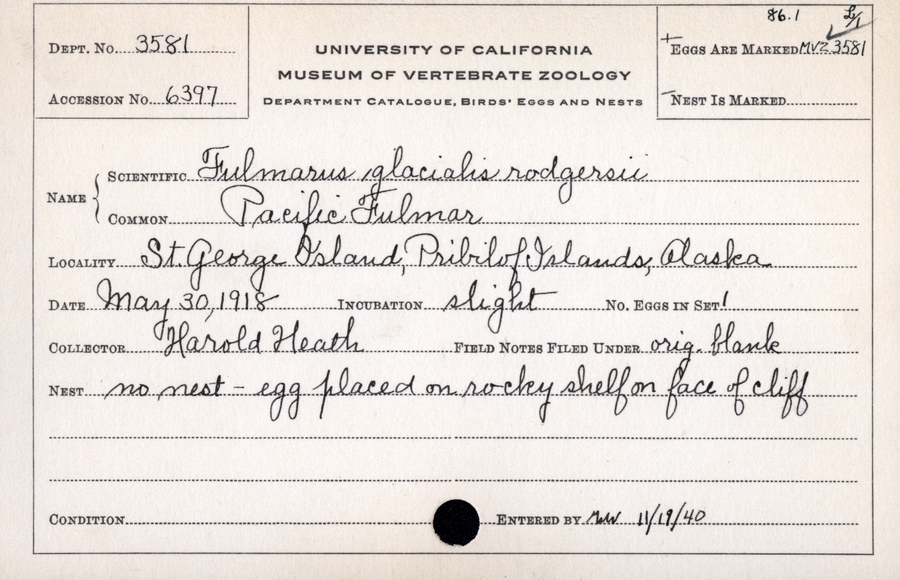 86.1
DEPT. No. 3581
UNIVERSITY OF CALIFORNIA
+ EGGS ARE MARKED MVZ 3581
MUSEUM OF VERTEBRATE ZOOLOGY
ACCESSION No. 6397
DEPARTMENT CATALOGUE, BIRDS' EGGS AND NESTS
– NEST IS MARKED
NAME { SCIENTIFIC Fulmarus glacialis rodgersii
COMMON Pacific Fulmar
LOCALITY St. George Island, Pribilof Islands, Alaska
DATE May 30, 1918 INCUBATION slight No. EGGS IN SET 1
COLLECTOR Harold Heath FIELD NOTES FILED UNDER orig. blank
NEST no nest – egg placed on rocky shelf on face of cliff
CONDITION ENTERED BY 11/19/40